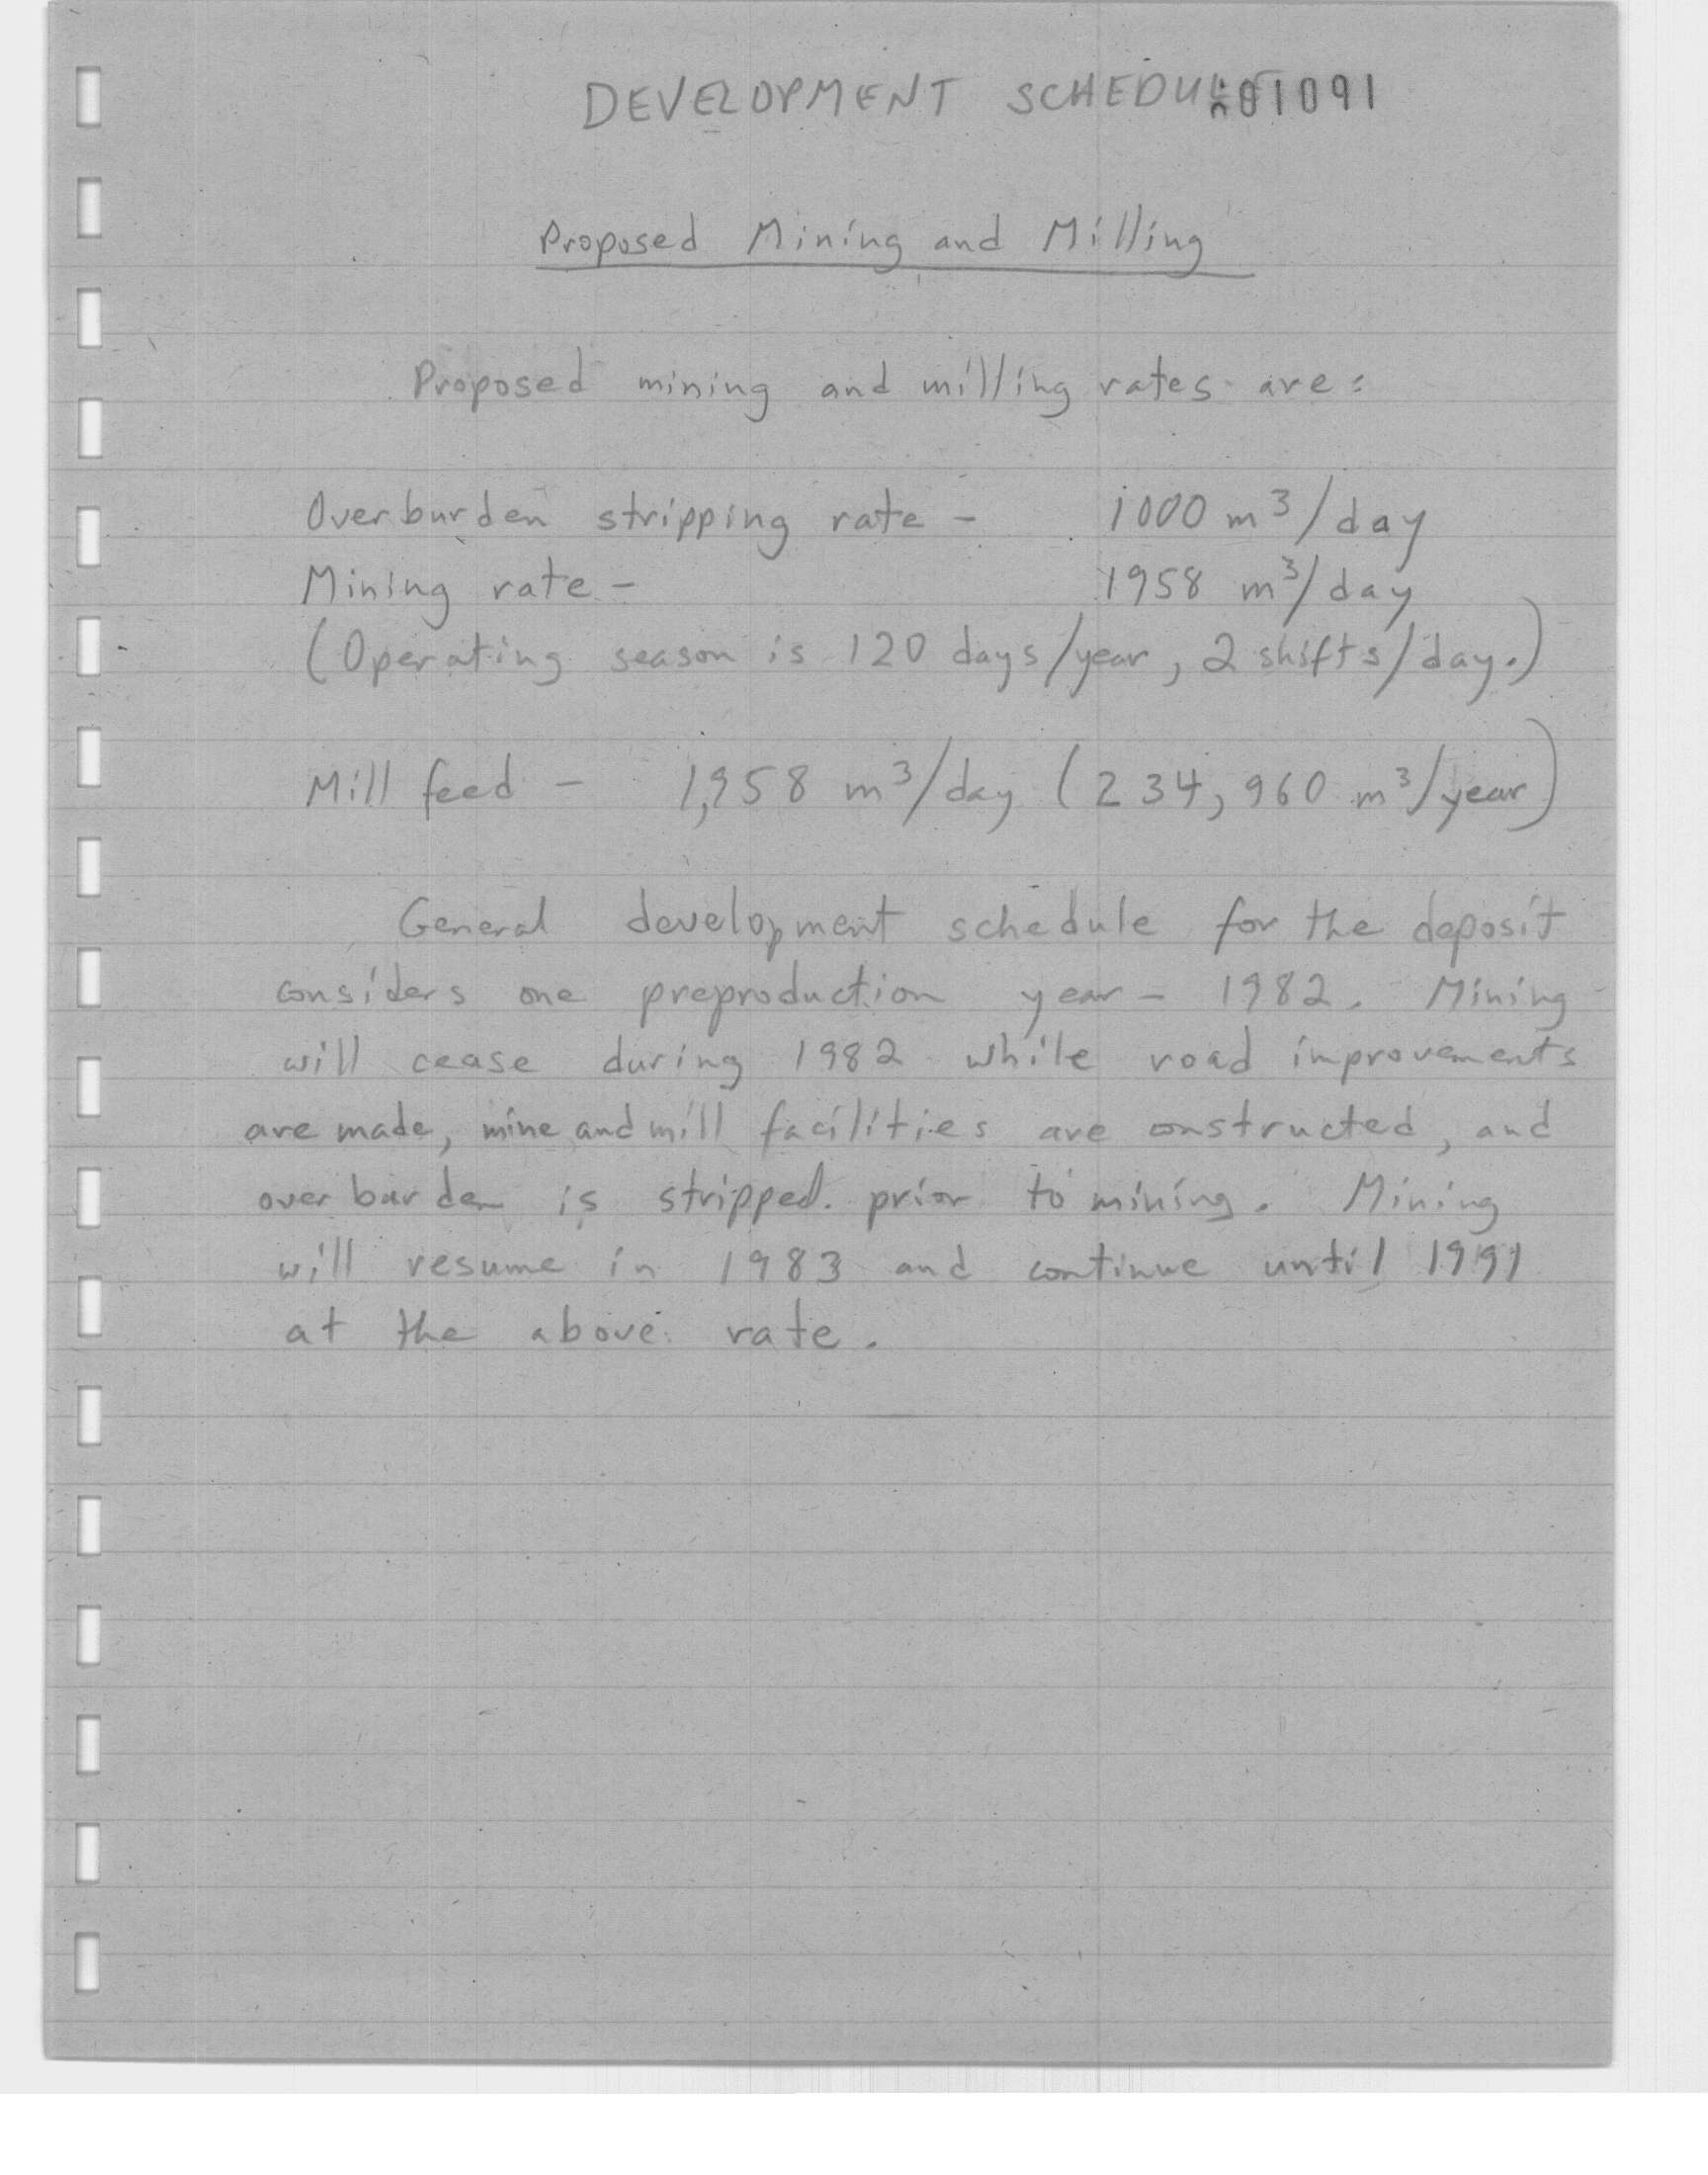 DEVELOPMENT SCHEDULE 01091
Proposed Mining and Milling
Proposed mining and milling rates are:
Overburden stripping rate - 1000 m³/day
Mining rate - 1958 m³/day
(Operating season is 120 days/year, 2 shifts/day.)
Mill feed - 1,958 m³/day (234,960 m³/year)
General development schedule for the deposit
considers one preproduction year - 1982. Mining
will cease during 1982 while road improvements
are made, mine and mill facilities are constructed, and
overburden is stripped prior to mining. Mining
will resume in 1983 and continue until 1991
at the above rate.